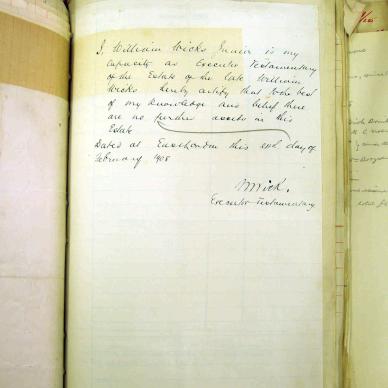 I, William Wicks Junior in my
capacity as Executor Testamentary
of the Estate of the late William
Wicks hereby certify that to the best
of my knowledge and belief there
are no further assets in this
Estate
Dated at East London this day of
February 1908
Wick.
Executor Testamentary